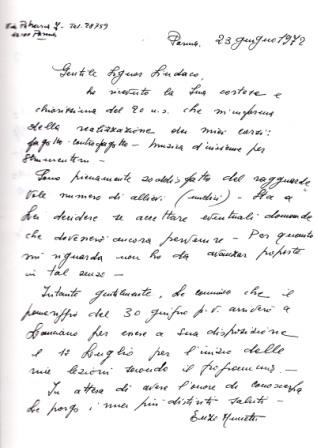 Via Petrarca 7 - Tel. 28759
43100 Parma
Parma, 23 giugno 1972
Gentile Signor Sindaco,
ho ricevuto la Sua cortese e
chiarissima del 20 u.s. che m'informa
della realizzazione dei miei corsi:
fagotto - controfagotto - musica d'insieme per
strumentini -
Sono pienamente soddisfatto del ragguarde
vole numero di allievi (undici) - Sta a
Lei decidere se accettare eventuali domande
che dovessero ancora pervenire - Per quanto
mi riguarda non ho da avanzare proposte
in tal senso -
Intanto gentilmente, Le comunico che il
pomeriggio del 30 giugno p.v. arriverò a
Lanciano per essere a sua disposizione
e 1° Luglio per l'inizio delle
mie lezioni secondo il programma. -
In attesa di avere l'onore di conoscerla
Le porgo i miei più distinti saluti -
Enzo